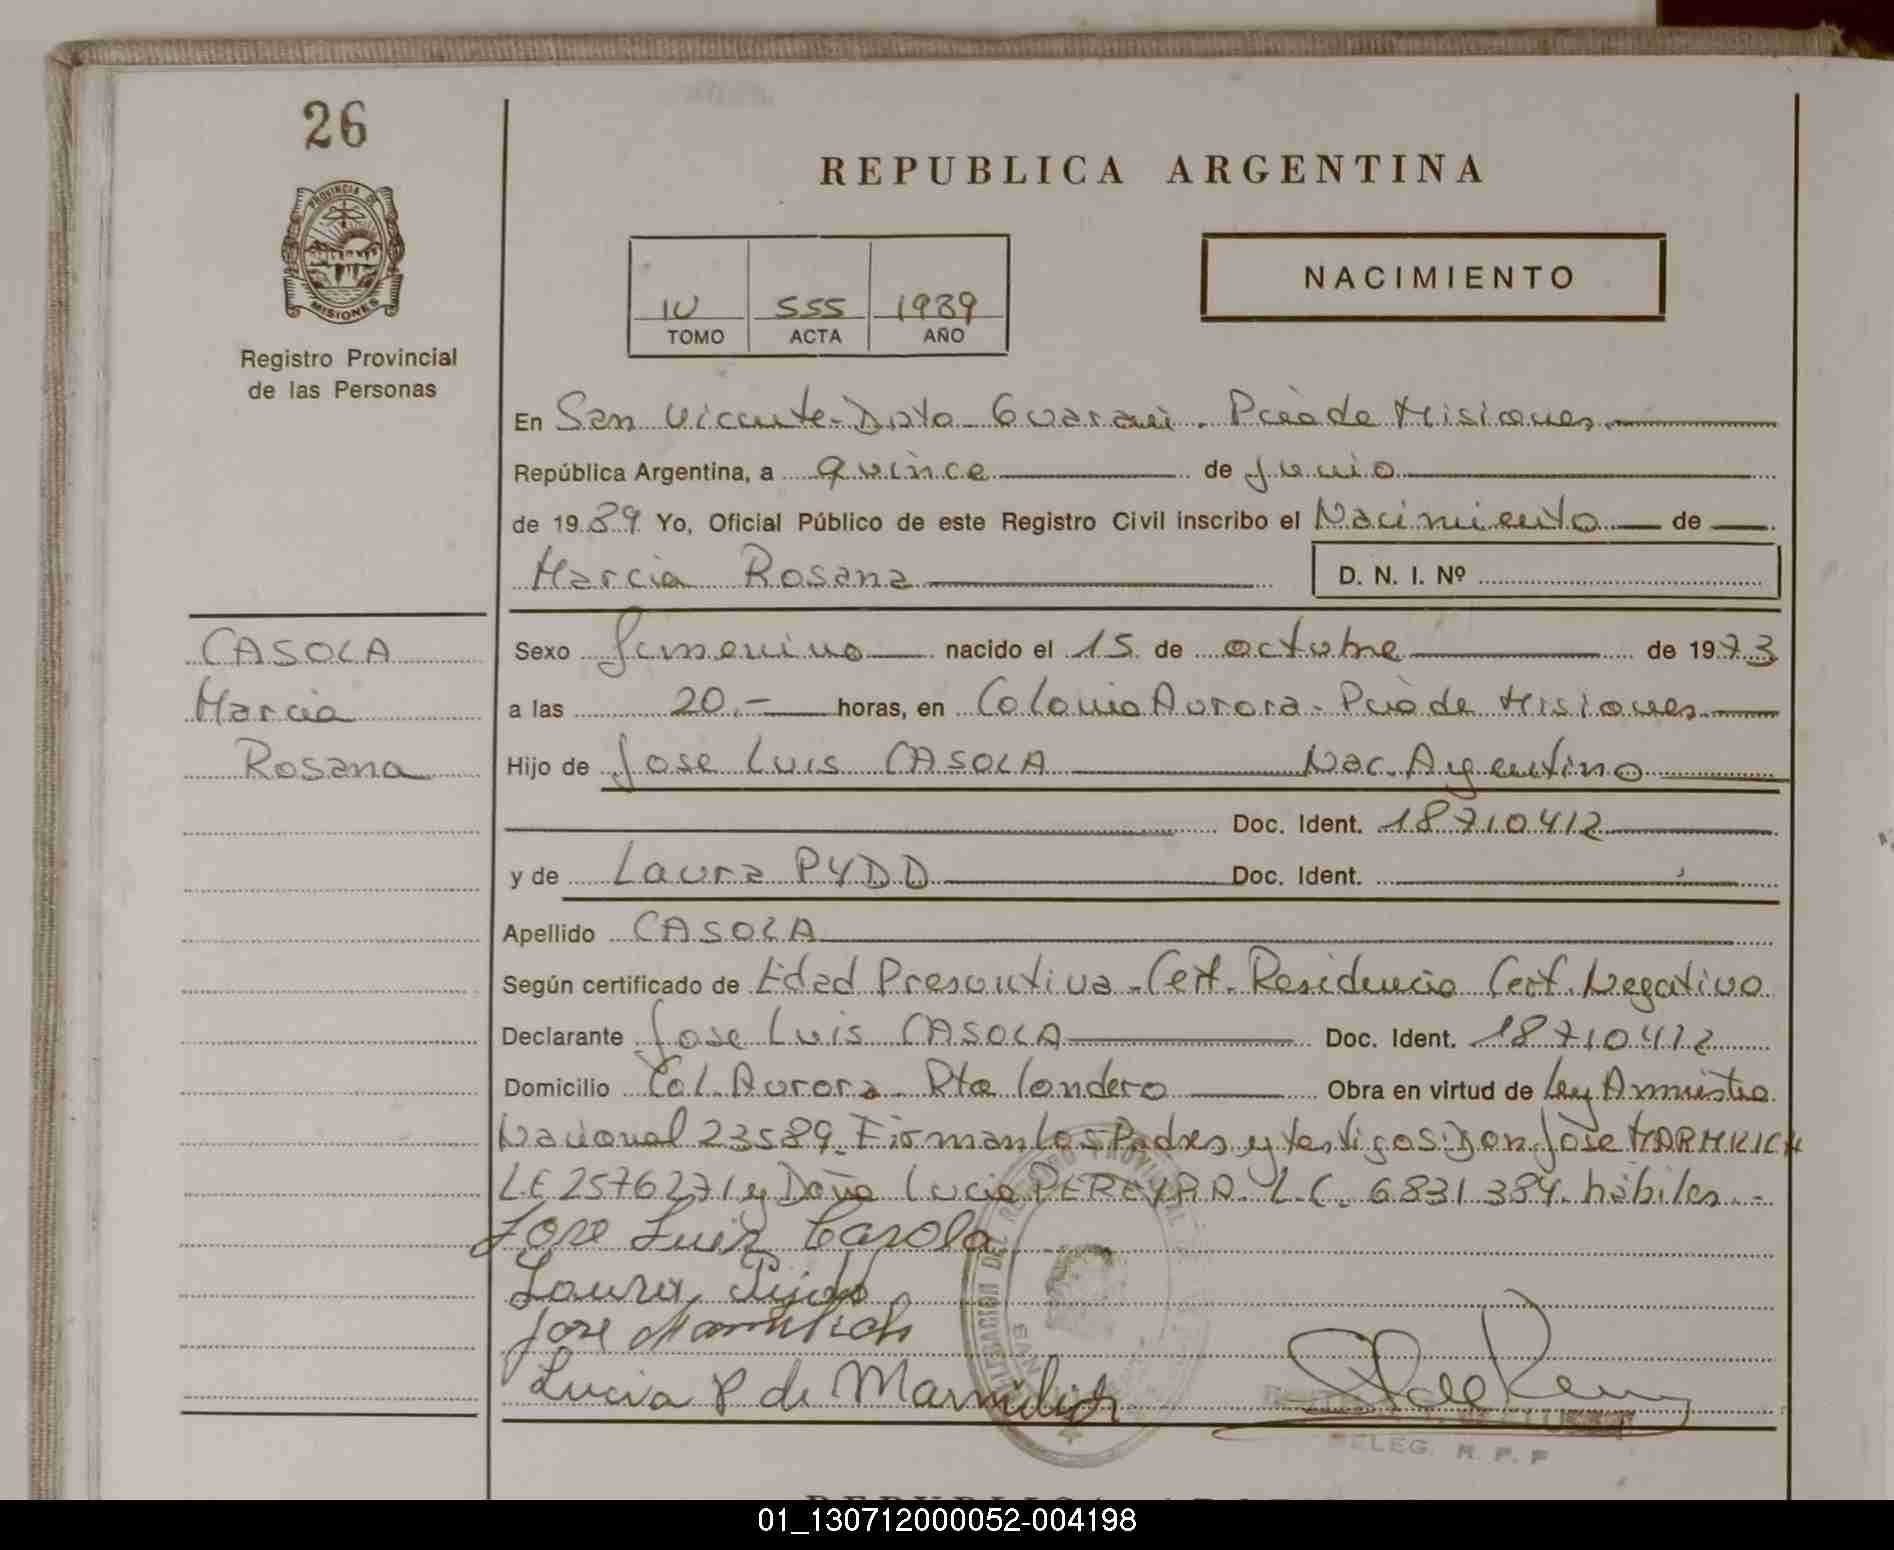 26
REPUBLICA ARGENTINA
PROVINCIA DE
MISIONES
Registro Provincial
de las Personas
NACIMIENTO
IV 555 1989
TOMO ACTA AÑO
En San Vicente-Dpto Guarani. Pcia de Misiones
República Argentina, a quince de Junio
de 1989 Yo, Oficial Público de este Registro Civil inscribo el Nacimiento de
Marcia Rosana D. N. I. Nº
CASOLA
Marcia
Rosana
Sexo femenino nacido el 15 de octubre de 1973
a las 20.- horas, en Colonia Aurora-Pcia de Misiones
Hijo de Jose Luis CASOLA Nac. Argentino
Doc. Ident. 18710412
y de Laura PYDD Doc. Ident.
Apellido CASOLA
Según certificado de Edad Presuntiva-Cert. Residencia Cert. Negativo
Declarante Jose Luis CASOLA Doc. Ident. 18710412
Domicilio Col. Aurora- Pto Londero Obra en virtud de Ley Amnistia
Nacional 23589. Firman los Padres y testigos: Don Jose
LE 2576271 y Doña Lucia PEREYRA L.C. 6831384 hábiles.-
Jose Luis Casola
Laura
Jose
Lucia P de
DELEG. R. P. P
01_130712000052-004198